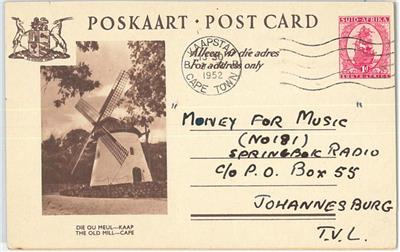 POSKAART · POST CARD
Alleen vir die adres
For address only
KAAPSTAD
1952
CAPE TOWN
SUID-AFRIKA
1D
SOUTH AFRICA
"MONEY FOR MUSIC"
(NO 181)
SPRINGBOK RADIO
C/o P.O. BOX 55
JOHANNESBURG
T.V.L.
DIE OU MEUL—KAAP
THE OLD MILL—CAPE